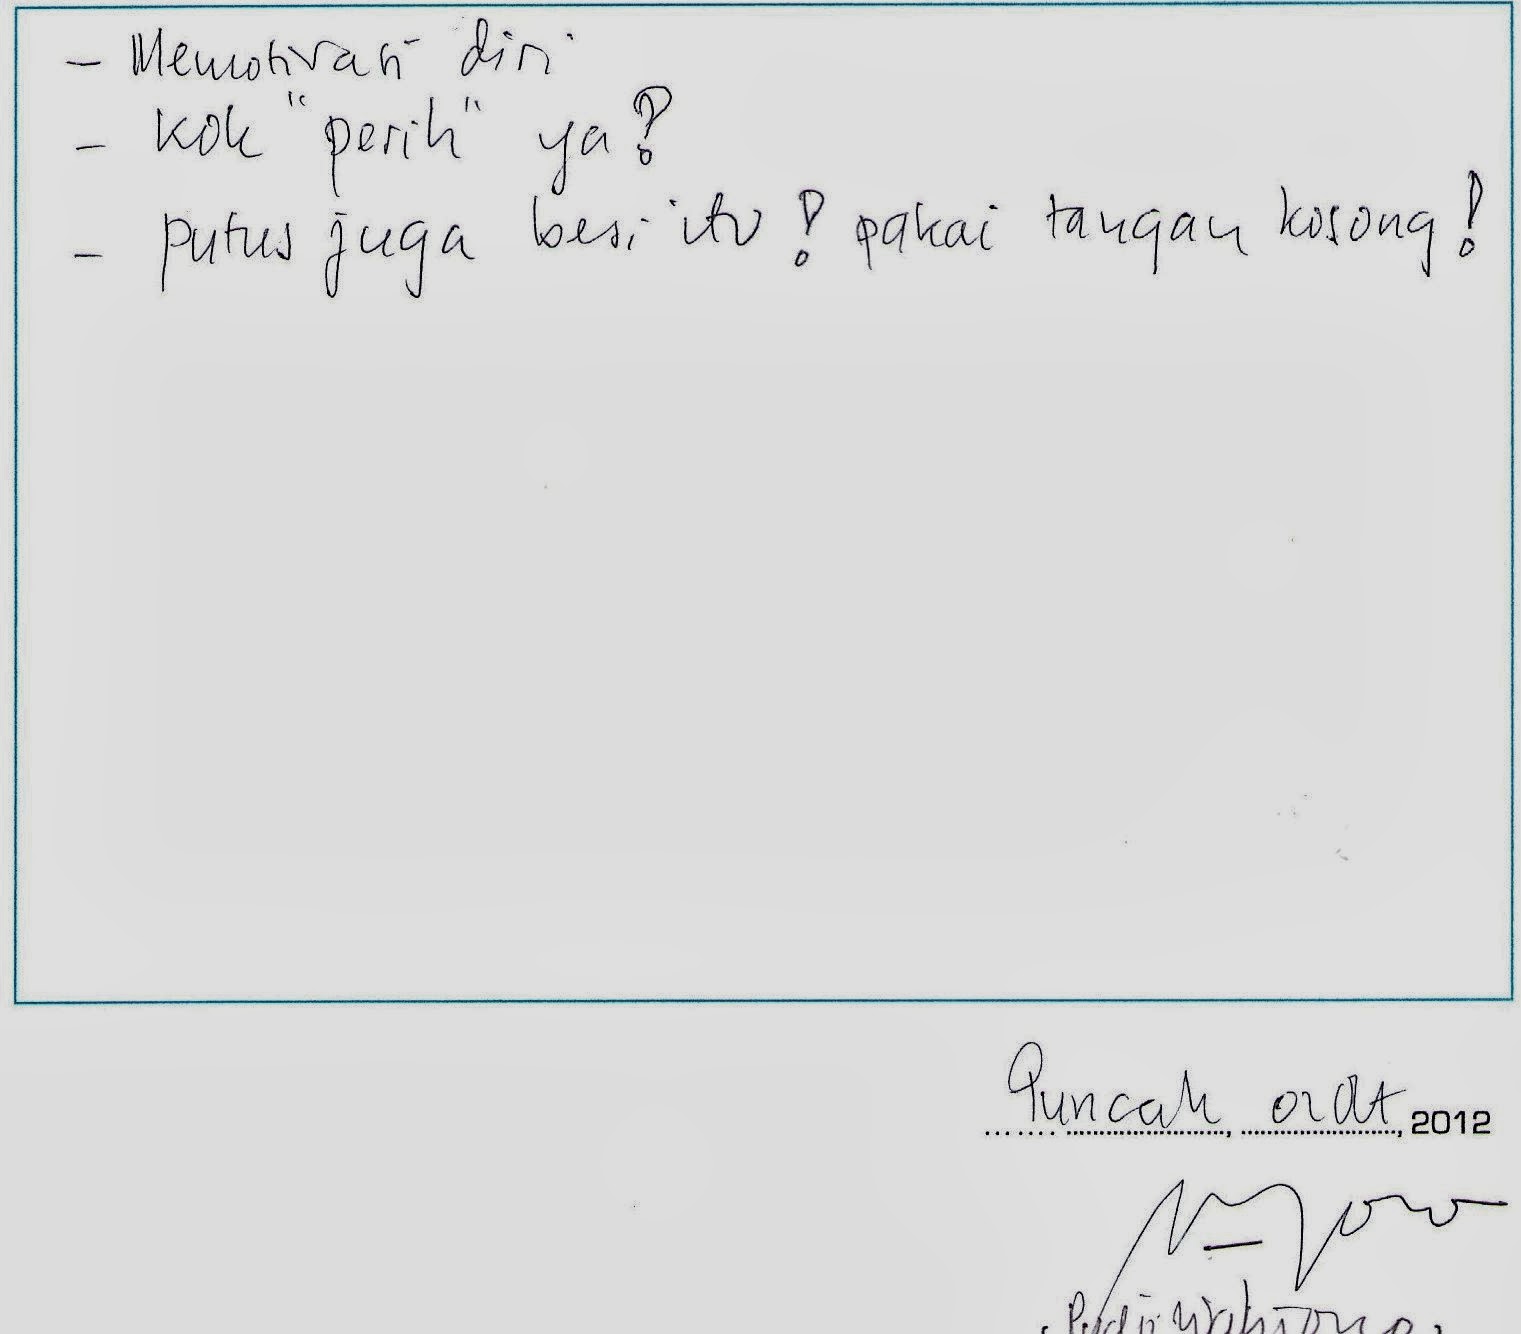 - Memotivasi diri
- kok "perih" ya?
- putus juga besi itu! pakai tangan kosong!
Puncak, okt, 2012